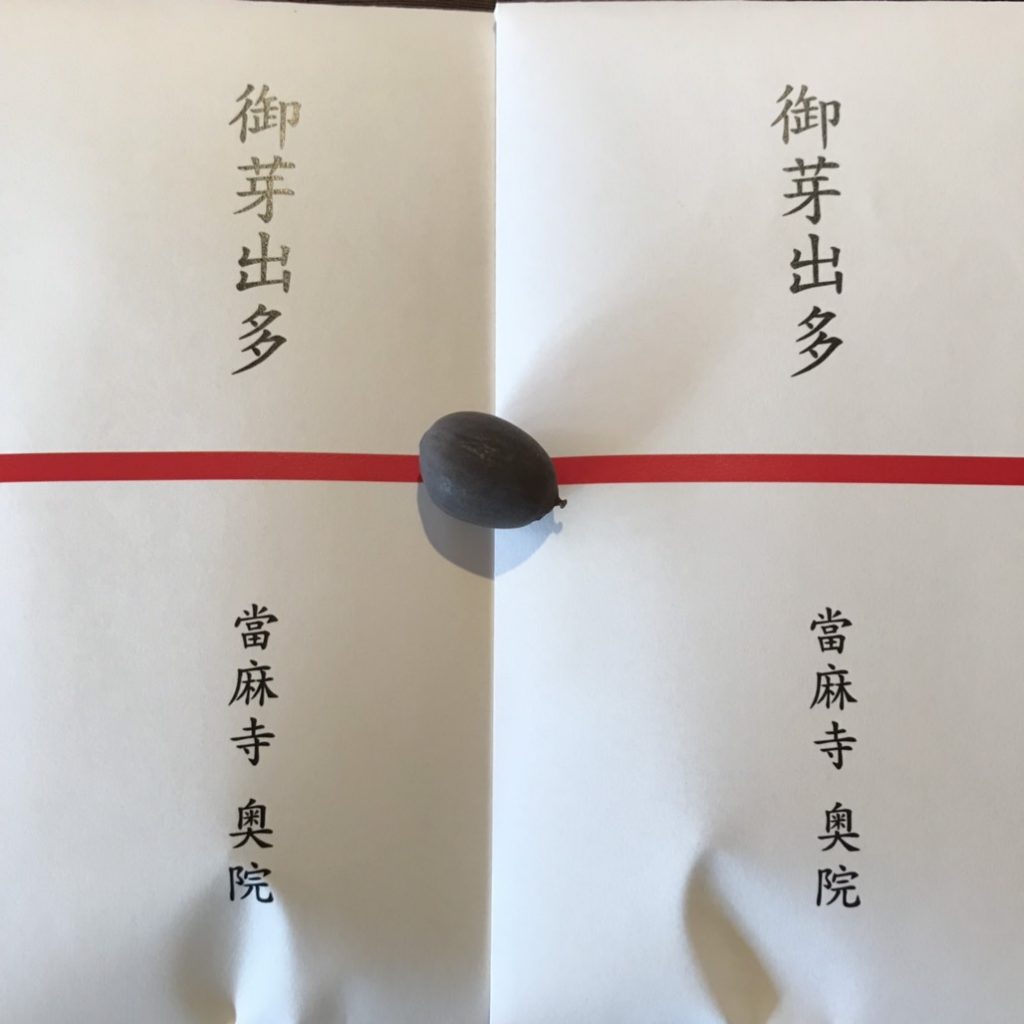 御芽出多
當麻寺 奥院
御芽出多
當麻寺 奥院